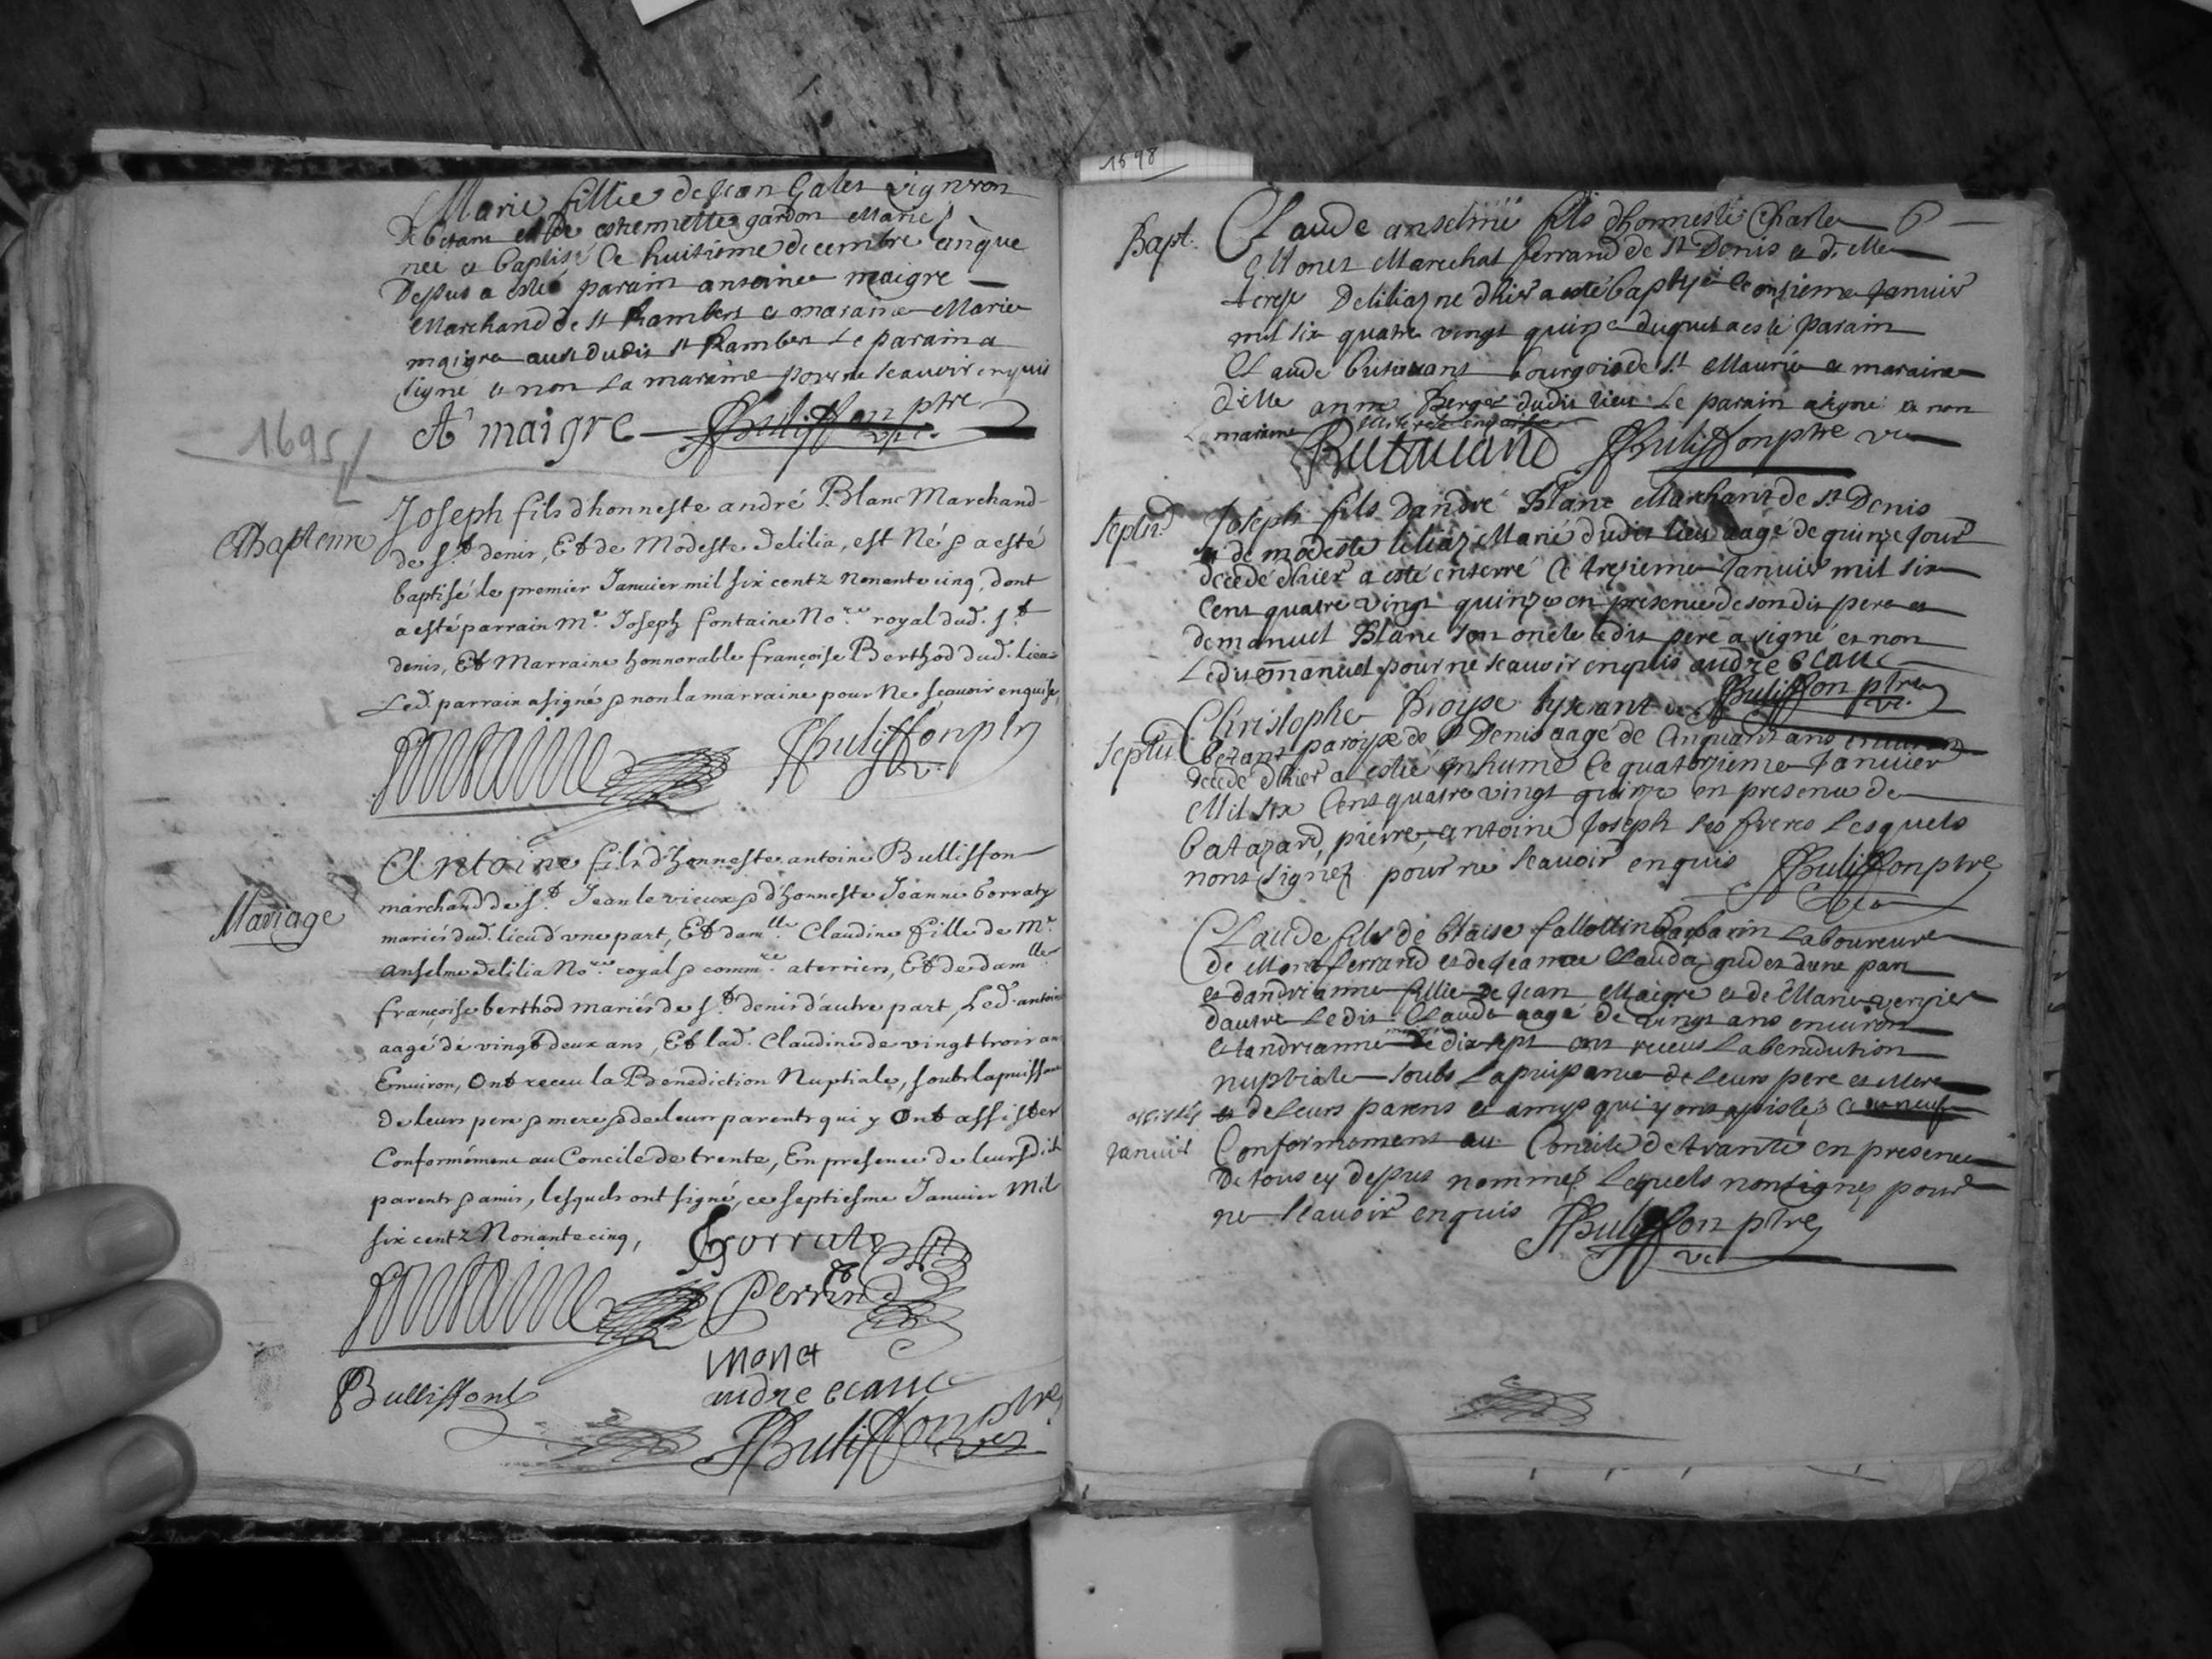 Marie fillie de Jean Galet vigneron
De betant et de estiennette gardon Mariés
née et baptisé Ce huitième decembre an que
Dessus a esté parain antoine maigre
Marchand de St Rambert et maraine Marie
maigre aussi dudit St Rambert Le parain a
signé et non La maraine pour ne scauoir enquis
A maigre JBuliffon ptre vic.
1695
Baptesme
Joseph fils d'honneste andré Blanc Marchand
de St. denis, Et de Modeste delilia, est Né & a esté
baptisé le premier Januier mil six centz Nonante cinq, dont
a esté parrain Me. Joseph fontaine Nore. royal dud. St.
denis, Et Marraine honnorable françoise Berthod dud. lieu
Led. parrain a signé & non la marraine pour Ne sçauoir enquise,
fontaine JBuliffon ptre
v.
Mariage
Antoine fils d'honneste antoine Bullisson
marchand de St. Jean le vieux & d'honneste Jeanne borraty
mariés dud. lieu d'vne part, Et damlle. Claudine fille de Mr.
anselme delilia Nore. royal & commre. a terriers, Et de damlle
françoise berthod mariés de St. denis d'autre part, Led. antoine
aagé de vingt deux ans, Et lad. Claudine de vingt trois ans
Enuiron, Ont receu la Benediction Nuptiale, soubs la puissance
de leurs pere & mere & de leurs parents qui y Ont assister
Conformément au Concile de trente, En presence de leursdit
parents & amis, lesquels ont signé, ce septiesme Januier Mil
six centz Nonante cinq,
Borraty
fontaine Perrin
monet
Bullissont andre blanc
JBuliffon ptre vic
1698
6
Bapt.
Claude anselme fils dhonneste Charle
Monet Marechal ferrand de St Denis et dlle
terese Deliliaz ne dhier a esté baptisé Ce onzieme Januier
mil six quatre vingt quinze duquel a esté parain
Claude butauant bourgois de St Maurice et maraine
dlle anne Berger dudit lieu Le parain a signé et non
La maraine
Butauand JBuliffon ptre vic
Septur
Joseph fils Dandré Blanc Marchant de St Denis
et de modeste liliaz Mariés dudit lieu aagé de quinze Jour
decede d'hier a esté enterré Ce tresieme Januier mil six
Cent quatre vingt quinze en presence de son dit pere et
de manuel Blanc son oncle Ledit pere a signé et non
Ledit emanuel pour ne scauoir enquis andre blanc
JBuliffon ptre vic.
Septur
Christophe
betant paroisse de St Denis aagé de Cinquant ans enuiron
decede d'hier a esté inhumé Ce quatorzieme Januier
Mil six Cent quatre vingt quinze en presence de
batazard, pierre, antoine Joseph ses freres Lesquels
nont signez pour ne scauoir enquis JBuliffon ptre
vic
Claude fils de blaise fallottin Laboureure
de Montferrand et de Jeanne Clauda dune part
et dandrianne fillie de Jean Maigre et de Marie vernier
dautre Ledit Claude aagé de vingt ans enuiron
et landrianne de dix sept ont receus La benediction
nuptiale soubs La puissance de Leurs pere et Mere
et de Leurs parens et amys qui y ont assistés
Januier Conformement au Concile de trante en presence
De tous cy dessus nommes Lesquels nont signez pour
ne scauoir enquis JBuliffon ptre
vic